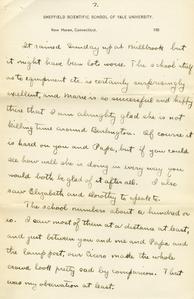 2.
SHEFFIELD SCIENTIFIC SCHOOL OF YALE UNIVERSITY.
New Haven, Connecticut, 190
It rained Sunday up at Millbrook but
it might have been lots worse. The school itself
as to equipment etc. is certainly surprisingly
excellent, and Marie is so successful and happy
there that I am almighty glad she is not
killing time around Burlington. Of course it
is hard on you and Papa, but if you could
see how well she is doing in every way you
would both be glad of it after all. I also
saw Elizabeth and Dorothy to speak to.
The school numbers about a hundred or
so. I saw most of them at a distance at least,
and just between you and me and Papa and
the lamp post, our made the whole
crowd look pretty sad by comparison. That
was my observation at least.